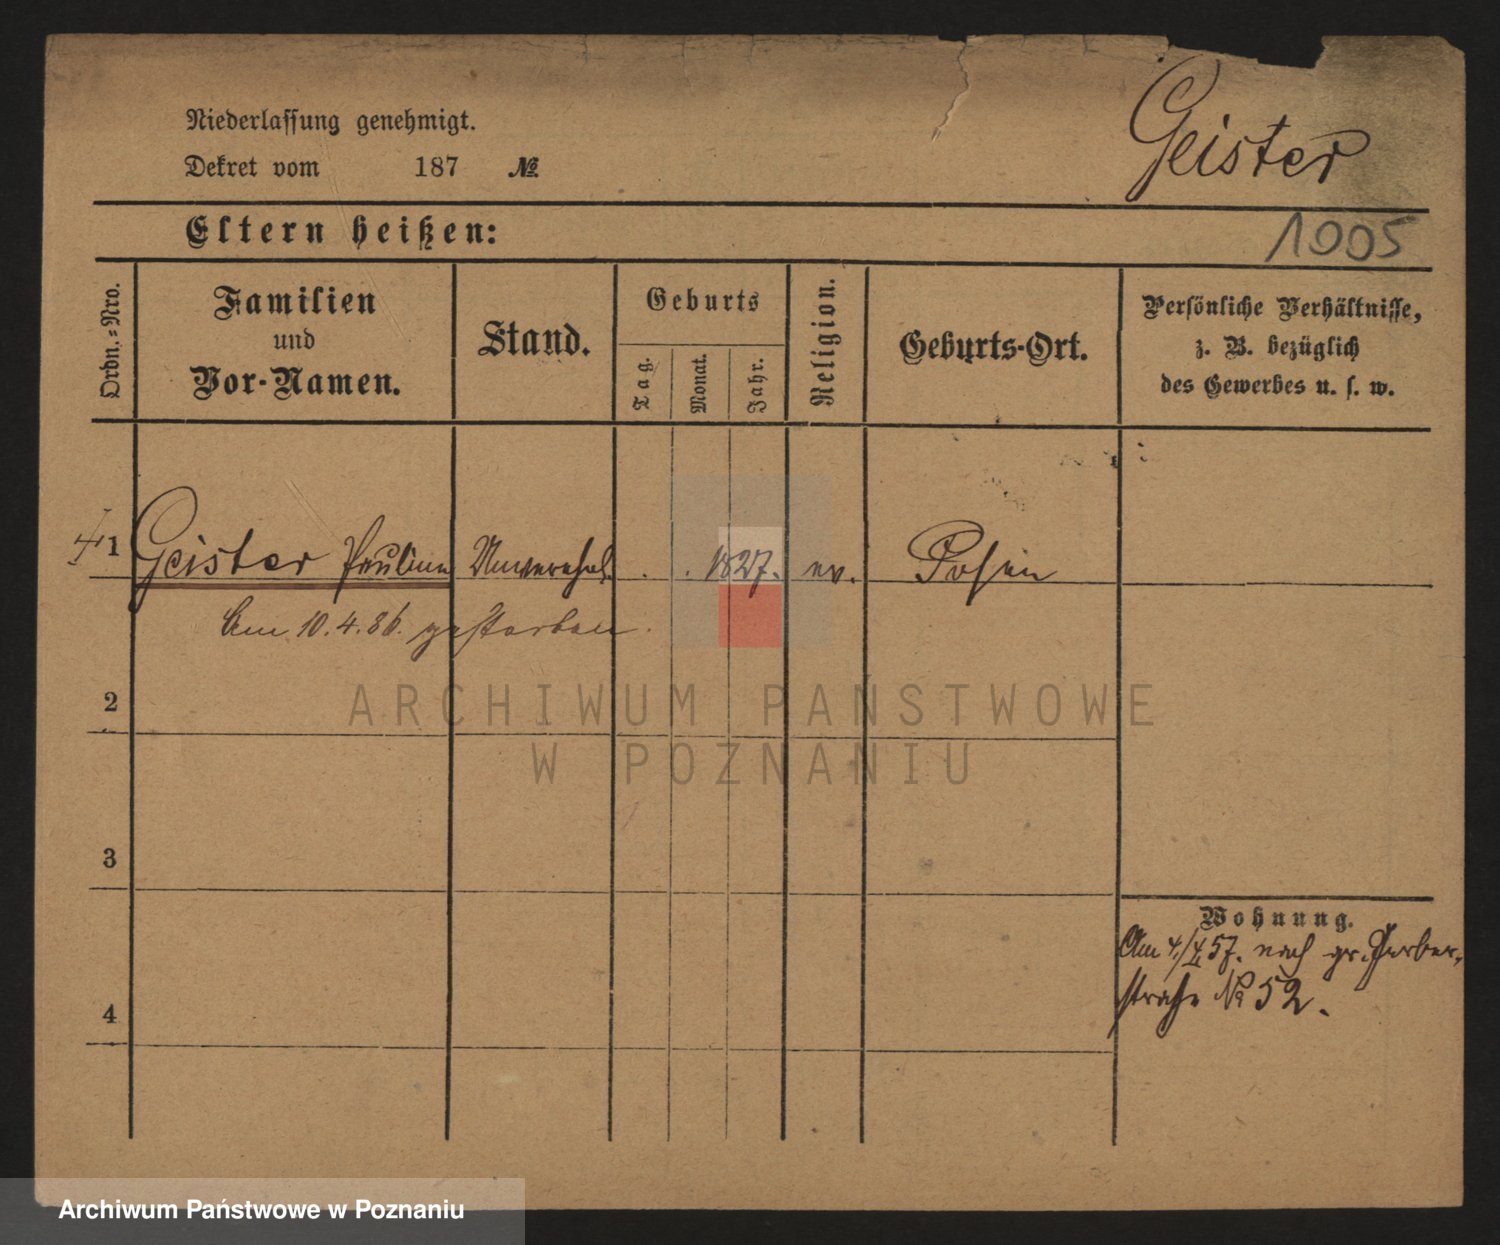 Niederlassung genehmigt.
Dekret vom 187 №
Geister
Eltern heißen:
1005
Ordn.-Nro.
Familien
und
Vor-Namen.
Stand.
Geburts
Tag.
Monat.
Jahr.
Religion.
Geburts-Ort.
Persönliche Verhältnisse,
z. B. bezüglich
des Gewerbes u. s. w.
1 Geister Pauline Unverehel. 1827. ev. Posen
Am 10.4.86. gestorben.
2
3
4
Wohnung.
Am 4./X 57. nach gr. Gerber-
straße № 52.
ARCHIWUM PAŃSTWOWE
W POZNANIU
Archiwum Państwowe w Poznaniu